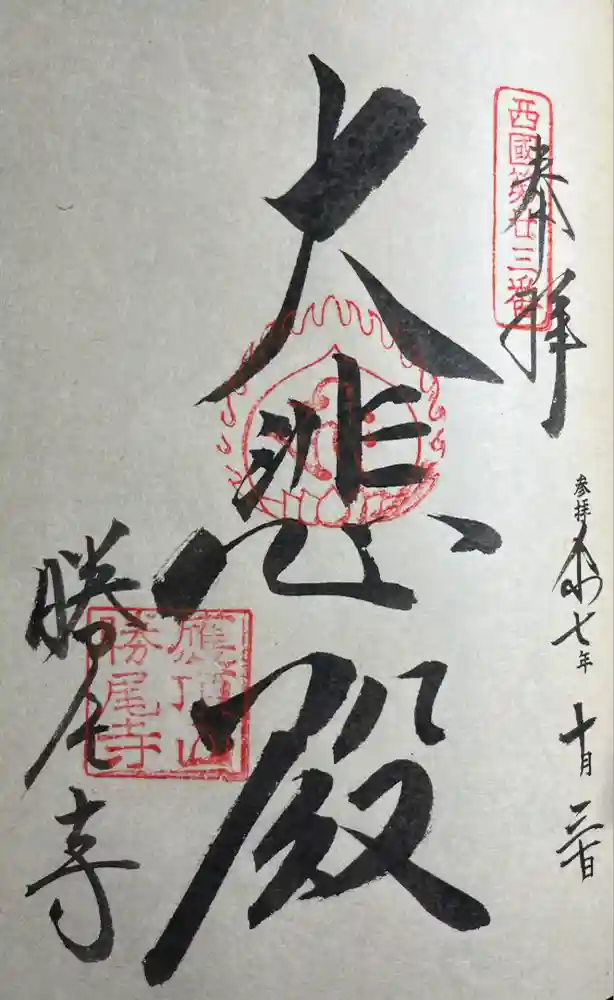 奉拝
西國第廿三番
参拝 令和七年 十月 三十日
大悲殿
應頂山
勝尾寺
勝尾寺